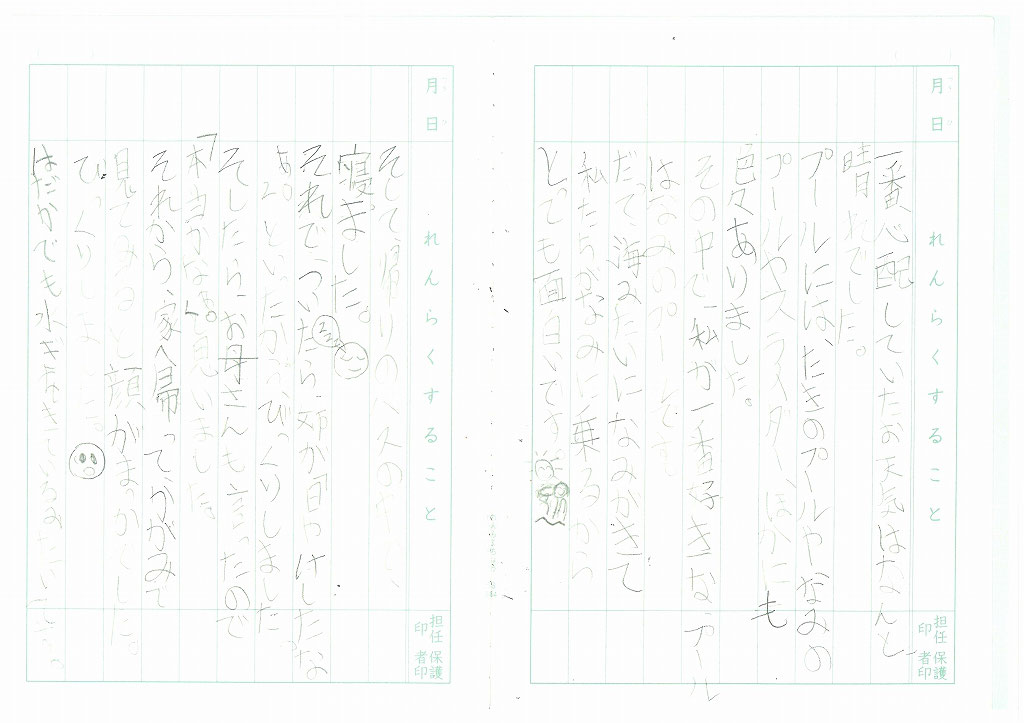 月 日
れんらくすること
担任印 保護者印
一番心配していたお天気はなんと、
晴れでした。
プールにには、たきのプールや、なみの
プールやスライダー、ほかにも
色々ありました。
その中で、私が一番好きな、プール
はなみのプールです。
だって、海みたいになみがきて
私たちがなみに乗るから
とっても面白いです。
月 日
れんらくすること
担任印 保護者印
そして、帰りのバスの中で、
寝ました。
それで、ついたら、が「日やけしたな
あ。」といったから、びっくりしました。
そしたら、お母さんも言ったので
「本当かなぁ。」と思いました。
それから、家へ帰って、かがみで
見てみると顔がまっかでした。
びっくりしました。
はだかでも水ぎをきているみたいです。